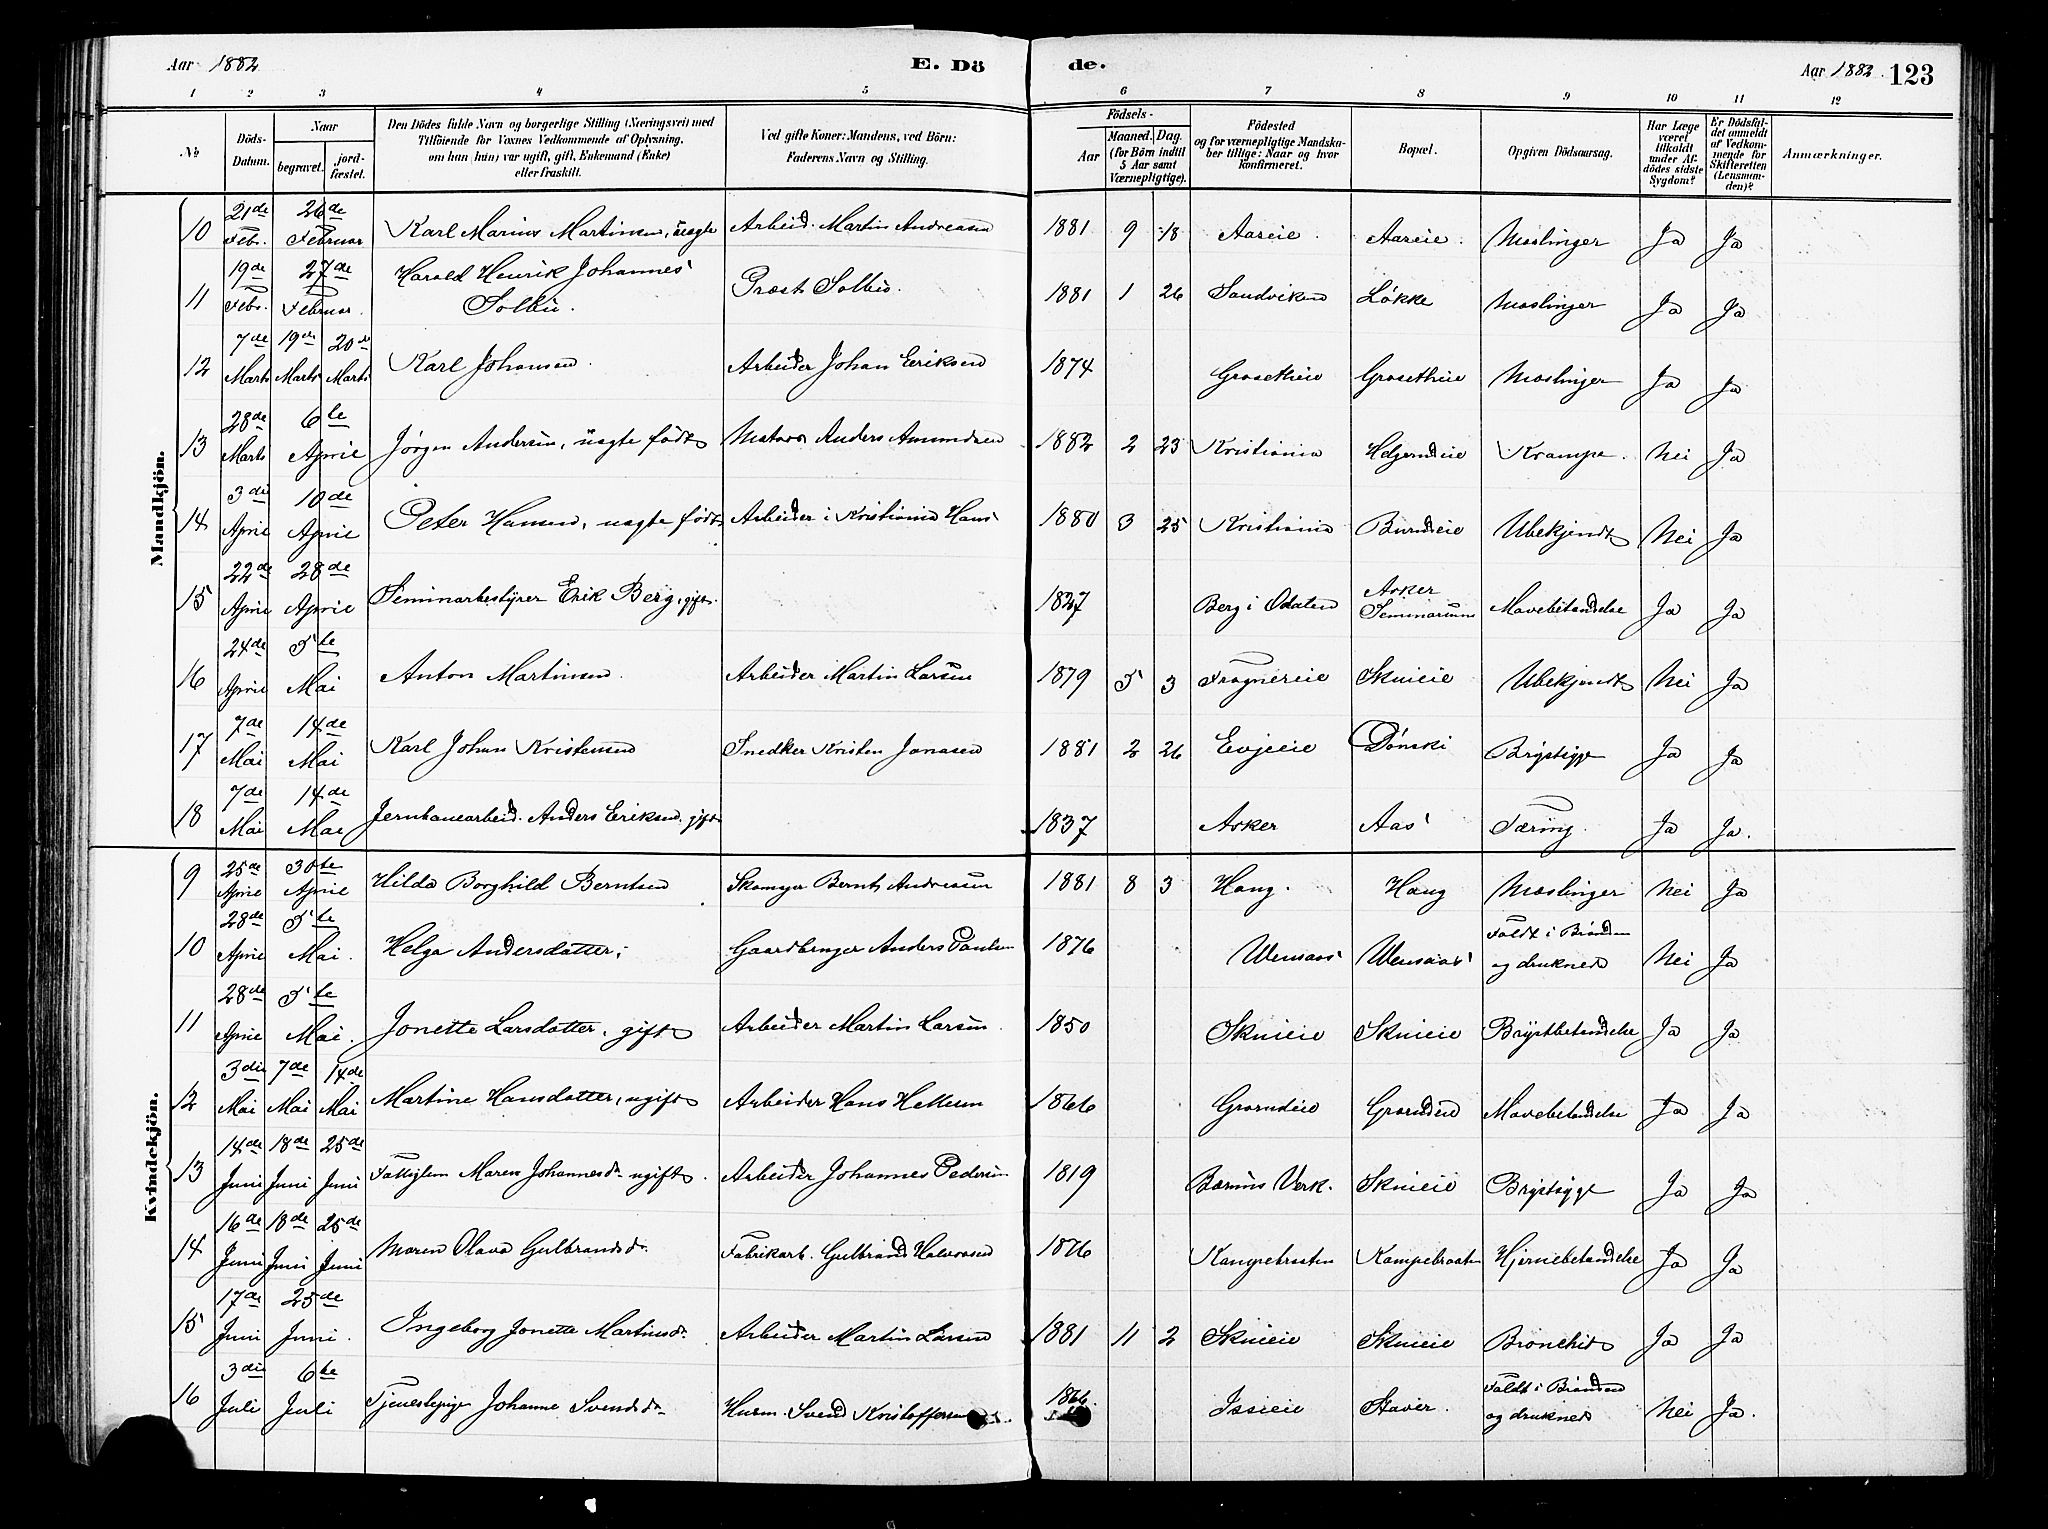 Aar 1882
E. Dö
de.
Aar 1882. 123
1 2 3 4 5 6 7 8 9 10 11 12
No
Döds-Datum.
Naar
begravet.
jord-fæstet.
Den Dödes fulde Navn og borgerlige Stilling (Næringsvei) med
Tilföiende for Voxnes Vedkommende af Oplysning,
om han (hun) var ugift, gift, Enkemand (Enke)
eller fraskilt.
Ved gifte Koner: Mandens, ved Börn:
Faderens Navn og Stilling.
Födsels-
Aar
Maaned. Dag.
(for Börn indtil
5 Aar samt
Værnepligtige).
Födested
og for værnepligtige Mandska-
ber tillige: Naar og hvor
konfirmeret.
Bopæl.
Opgiven Dödsaarsag.
Har Læge
været
tilkaldt
under Af-
dödes sidste
Sygdom?
Er Dödsfal-
det anmeldt
af Vedkom-
mende for
Skifteretten
(Lensman-
den)?
Anmærkninger.
Mandkjön.
10 21de Febr. 26de Februar Karl Marius Martinsen, uægte Arbeid. Martin Andreasen 1881 9 18 Aaseie. Aaseie. Mæslinger Ja Ja
11 19de Febr. 27de Februar. Harald Henrik Johannes Solbü. Præst Solbü. 1881 1 26 Sandviken Løkke Mæslinger Ja Ja
12 7de Marts 19de Marts 20de Marts Karl Johansen. Arbeider Johan Eriksen 1874 Grosetheie Grosetheie Mæslinger Ja Ja
13 28de Marts 6te April Jørgen Andersen, uægte født Matros Anders Amundsen 1882 2 23 Kristiania Krampe. Nei Ja
14 3die April 10de April Peter Hansen, uægte født Arbeider i Kristiania Hans 1880 3 25 Kristiania Ubekjendt Nei Ja
15 22de April 28de April Seminarbestyrer Erik Berg, gift. 1827 Berg i Odalen Asker Seminarium Mavebetændelse Ja Ja
16 24de April 5te Mai Anton Martinsen. Arbeider Martin Larsen 1879 5 3 Frognereie Skuieie Ubekjendt Nei Ja
17 7de Mai 14de Mai Karl Johan Kristensen Snedker Kristen Jonasen 1881 2 26 Evjeeie Dønski Brystsyge Ja Ja
18 7de Mai 14de Mai Jernbanearbeid. Anders Eriksen. gift 1837 Asker Aas Tæring. Ja Ja.
Kvindekjön.
9 25de April 30te April Hilda Borghild Berntsen Skomager Bernt Andreasen 1881 8 3 Haug. Haug Mæslinger Nei Ja
10 28de April 5te Mai. Helga Andersdatter, Gaardbruger Anders Paulsen 1876 Wensaas Wensaas Faldt i Brønden og druknede Nei Ja
11 28de April 5te Mai. Jonette Larsdatter, gift Arbeider Martin Larsen. 1850 Skuieie Skuieie Brystbetændelse Ja Ja
12 3die Mai 7de Mai 14de Mai Martine Hansdatter, ugift Arbeider Hans 1866 Mavebetændelse Ja Ja
13 14de Juni 18de Juni 25de Juni Fattiglem Maren Johannesd. ugift. Arbeider Johannes Pedersen 1819 Bærums Verk. Skuieie Brystsyge Ja Ja
14 16de Juni 18de Juni 25de Juni Maren Olava Gulbrandsd. Fabrikarb. Gulbrand Halvorsen 1876 Kampebraaten Kampebraaten Hjernebetændelse Ja Ja
15 17de Juni 25de Juni. Ingeborg Jonette Martinsd. Arbeider Martin Larsen 1881 11 2 Skuieie Skuieie Bronchit Ja Ja
16 3die Juli 6te Juli Tjenestepige Johanne Svendsd. Husm. Svend Kristoffersen 1866. Issieie Staver. Faldt i Brønden og druknede Nei Ja.